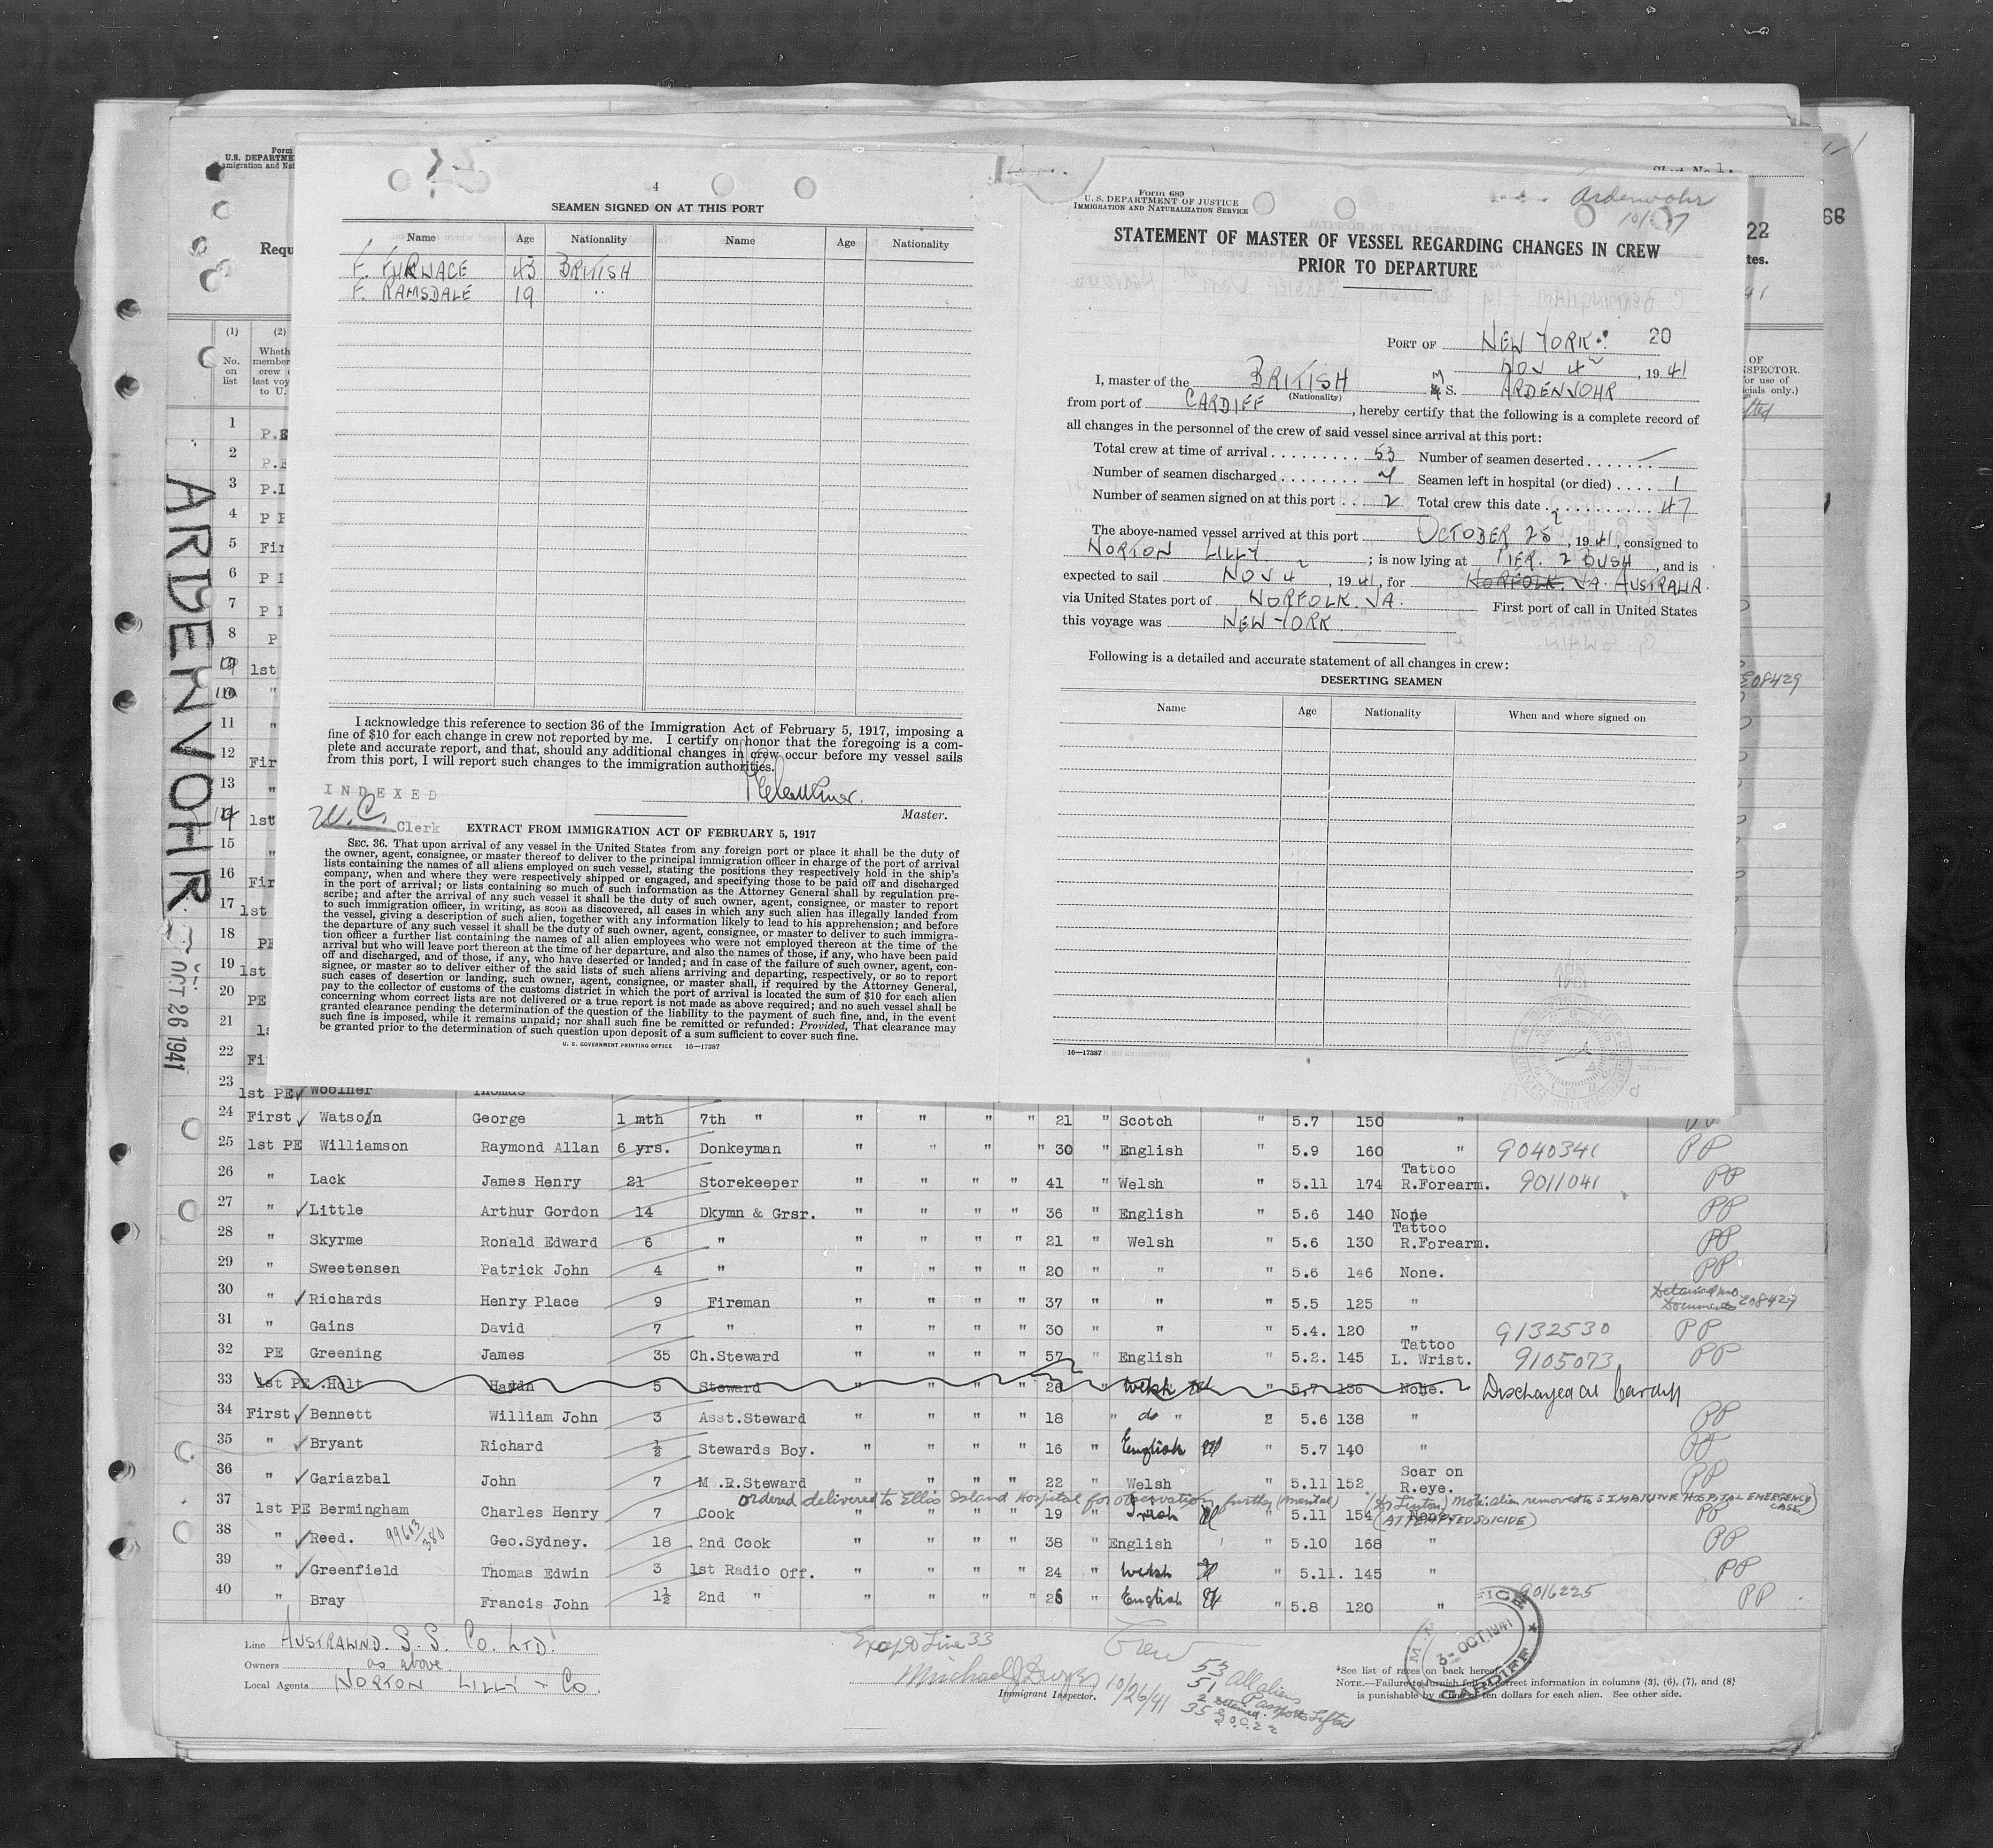 Form
U.S. DEPARTME
migration and Nat
Requ
ARDENVOHR
OCT 26 1941
4
SEAMEN SIGNED ON AT THIS PORT
Name Age Nationality Name Age Nationality
F. FURNACE 43 BRITISH
F. RAMSDALE 19 "
I acknowledge this reference to section 36 of the Immigration Act of February 5, 1917, imposing a
fine of $10 for each change in crew not reported by me. I certify on honor that the foregoing is a com-
plete and accurate report, and that, should any additional changes in crew occur before my vessel sails
from this port, I will report such changes to the immigration authorities.
Master.
INDEXED
W.C. Clerk
EXTRACT FROM IMMIGRATION ACT OF FEBRUARY 5, 1917
SEC. 36. That upon arrival of any vessel in the United States from any foreign port or place it shall be the duty of
the owner, agent, consignee, or master thereof to deliver to the principal immigration officer in charge of the port of arrival
lists containing the names of all aliens employed on such vessel, stating the positions they respectively hold in the ship's
company, when and where they were respectively shipped or engaged, and specifying those to be paid off and discharged
in the port of arrival; or lists containing so much of such information as the Attorney General shall by regulation pre-
scribe; and after the arrival of any such vessel it shall be the duty of such owner, agent, consignee, or master to report
to such immigration officer, in writing, as soon as discovered, all cases in which any such alien has illegally landed from
the vessel, giving a description of such alien, together with any information likely to lead to his apprehension; and before
the departure of any such vessel it shall be the duty of such owner, agent, consignee, or master to deliver to such immigra-
tion officer a further list containing the names of all alien employees who were not employed thereon at the time of the
arrival but who will leave port thereon at the time of her departure, and also the names of those, if any, who have been paid
off and discharged, and of those, if any, who have deserted or landed; and in case of the failure of such owner, agent, con-
signee, or master so to deliver either of the said lists of such aliens arriving and departing, respectively, or so to report
such cases of desertion or landing, such owner, agent, consignee, or master shall, if required by the Attorney General,
pay to the collector of customs of the customs district in which the port of arrival is located the sum of $10 for each alien
concerning whom correct lists are not delivered or a true report is not made as above required; and no such vessel shall be
granted clearance pending the determination of the question of the liability to the payment of such fine, and, in the event
such fine is imposed, while it remains unpaid; nor shall such fine be remitted or refunded: Provided, That clearance may
be granted prior to the determination of such question upon deposit of a sum sufficient to cover such fine.
U. S. GOVERNMENT PRINTING OFFICE 16—17387
Form 689
U. S. DEPARTMENT OF JUSTICE
IMMIGRATION AND NATURALIZATION SERVICE
Ardenvohr
STATEMENT OF MASTER OF VESSEL REGARDING CHANGES IN CREW
PRIOR TO DEPARTURE
PORT OF NEW YORK 20
NOV 4, 1941
I, master of the BRITISH M S. ARDENVOHR
(Nationality)
from port of CARDIFF, hereby certify that the following is a complete record of
all changes in the personnel of the crew of said vessel since arrival at this port:
Total crew at time of arrival 53 Number of seamen deserted —
Number of seamen discharged 7 Seamen left in hospital (or died) 1
Number of seamen signed on at this port 2 Total crew this date 47
The above-named vessel arrived at this port OCTOBER 25, 1941, consigned to
NORTON LILLY; is now lying at PIER. 2 BUSH, and is
expected to sail NOV 4, 1941, for NORFOLK. VA. AUSTRALIA.
via United States port of NORFOLK. VA. First port of call in United States
this voyage was NEW YORK
Following is a detailed and accurate statement of all changes in crew:
DESERTING SEAMEN
Name Age Nationality When and where signed on
16—17387
(1) (2)
No. on list
Wheth
member
crew
last voy
to U.
1 P.E
2 P.E
3 P.I
4 P P
5 Fir
6 P I
7 P I
8 P
9 1st
10 "
11 "
12 Fir
13 "
14 1st
15 "
16 Fir
17 1st
18 PE
19 1st
20 PE
21 1s
22 Fi
23 1st PE Woolner Thomas
24 First Watson George 1 mth 7th " " " " " 21 " Scotch 5.7 150 " PP
25 1st PE Williamson Raymond Allan 6 yrs. Donkeyman " " " " 30 " English " 5.9 160 " 9040341 PP
26 " Lack James Henry 21 Storekeeper " " " " 41 " Welsh " 5.11 174 Tattoo R.Forearm. 9011041 PP
27 " Little Arthur Gordon 14 Dkymn & Grsr. " " " " 36 " English " 5.6 140 None PP
28 " Skyrme Ronald Edward 6 " " " " " 21 " Welsh " 5.6 130 Tattoo R.Forearm. PP
29 " Sweetensen Patrick John 4 " " " " " 20 " " 5.6 146 None. PP
30 " Richards Henry Place 9 Fireman " " " " 37 " " " 5.5 125 " Detained no Documents E08429
31 " Gains David 7 " " " " " 30 " " " 5.4. 120 " 9132530 PP
32 PE Greening James 35 Ch.Steward " " " " 57 " English " 5.2. 145 Tattoo L. Wrist. 9105073 PP
33 1st PE Holt Haydn 5 Steward " " " " 26 " Welsh " 5.7 136 None. Discharged at Cardiff
34 First Bennett William John 3 Asst.Steward " " " " 18 " do " 5.6 138 " PP
35 " Bryant Richard ½ Stewards Boy. " " " " 16 " English " 5.7 140 " PP
36 " Gariazbal John 7 M.R.Steward " " " " 22 " Welsh " 5.11 152 Scar on R.eye. PP
ordered delivered to Ellis Island Hospital for observation further (mental) (Dr Linton) Note: alien removed to S I MARINE HOSPITAL EMERGENCY CASE
(ATTEMPTED SUICIDE)
37 1st PE Bermingham Charles Henry 7 Cook " " " " 19 " Irish " 5.11 154 None PP
38 " Reed. Geo.Sydney. 18 2nd Cook " " " " 38 " English " 5.10 168 " PP
39 " Greenfield Thomas Edwin 3 1st Radio Off. " " " " 24 " Welsh " 5.11. 145 " PP
40 " Bray Francis John 1½ 2nd " " " " " 26 " English " 5.8 120 " 9016225 PP
Line AUSTRALIND. S. S. Co. LTD.
Owners as above
Local Agents NORTON LILLY & Co.
Except Line 33
Michael J Dwyer 10/26/41
Immigrant Inspector.
Crew 53
51 All aliens
2 detained. Passports Lifted
35
*See list of races on back hereof
NOTE.—Failure to furnish full correct information in columns (3), (6), (7), and (8)
is punishable by a fine of ten dollars for each alien. See other side.
3- OCT 1941
CARDIFF